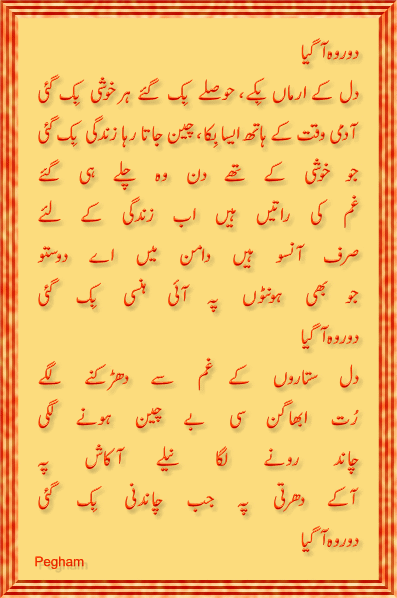 دور وہ آ گیا
دل کے ارماں بکے، حوصلے بِک گئے ہر خوشی بِک گئی
آدمی وقت کے ہاتھ ایسا بِکا، چین جاتا رہا زندگی بِک گئی
جو خوشی کے تھے دن وہ چلے ہی گئے
غم کی راتیں ہیں اب زندگی کے لئے
صرف آنسو ہیں دامن میں اے دوستو
جو بھی ہونٹوں پہ آئی ہنسی بِک گئی
دور وہ آ گیا
دل ستاروں کے غم سے دھڑکنے لگے
رُت ابھاگن سی بے چین ہونے لگی
چاند رونے لگا نیلے آکاش پہ
آکے دھرتی پہ جب چاندنی بِک گئی
دور وہ آ گیا
Pegham